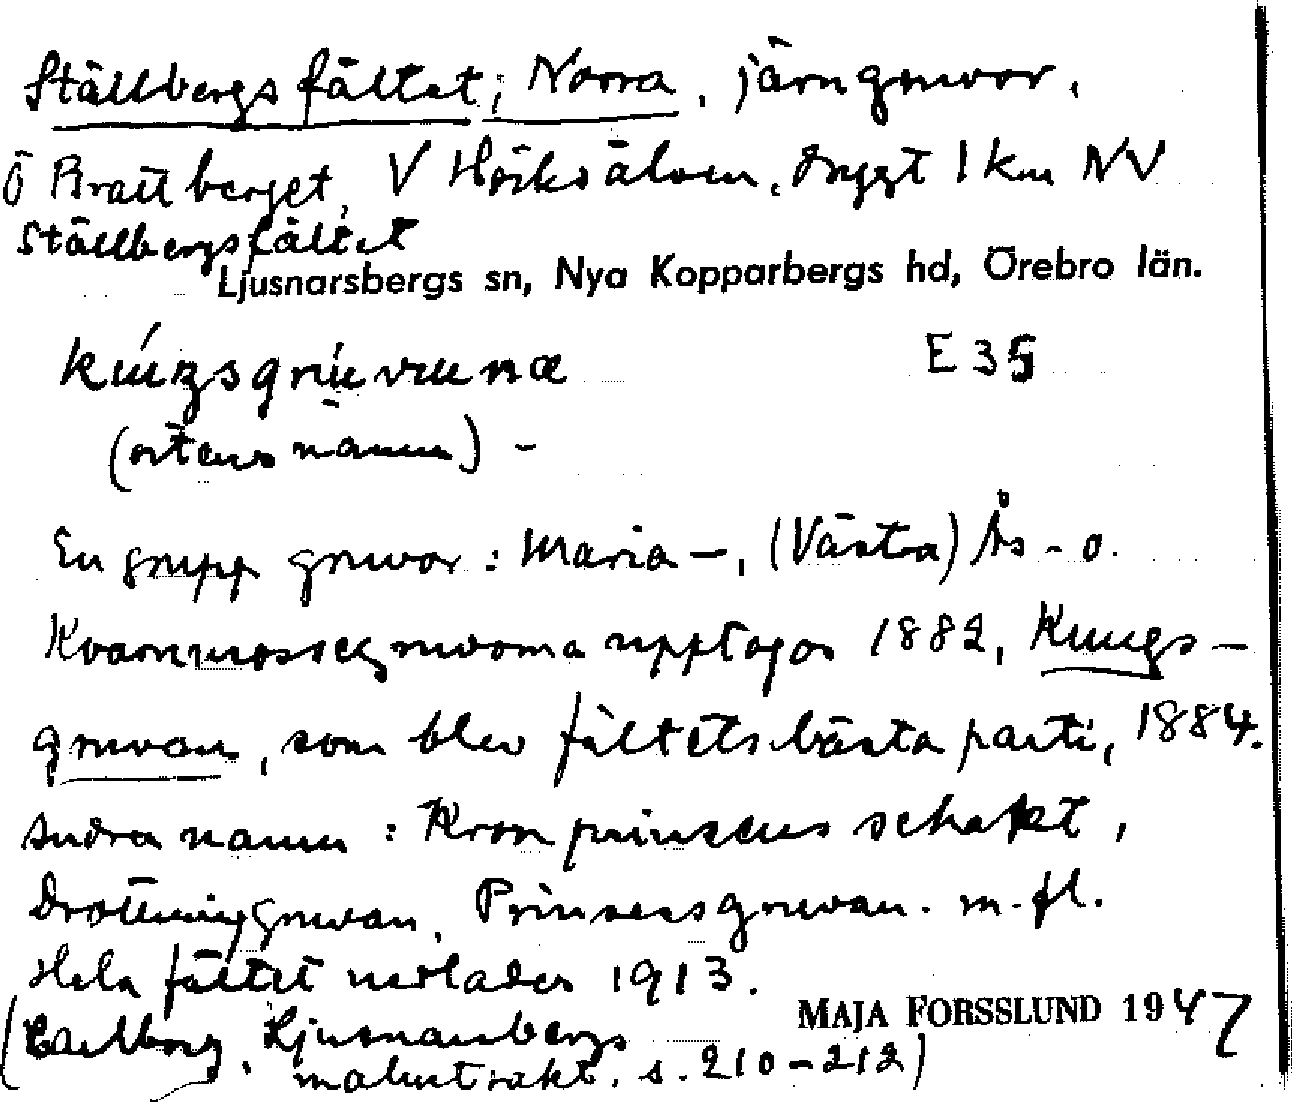 Ställbergsfältet, Norra, järngruvor,
Ö Brattberget, V Hörksälven, drygt 1 km NV
Ställbergsfältet
Ljusnarsbergs sn, Nya Kopparbergs hd, Örebro län.
E 35
(ortens namn) -
En grupp gruvor: Maria-, (Västra) Ås- o.
Kvarnmossegruvorna upptogos 1882, Kungs-
gruvan, som blev fältets bästa parti, 1884.
Andra namn: Kronprinsens schakt,
Drottninggruvan, Prinsensgruvan. m. fl.
Hela fältet nedlades 1913.
MAJA FORSSLUND 1947
(Carlborg, Ljusnarsbergs
malmtrakt. s. 210-212)